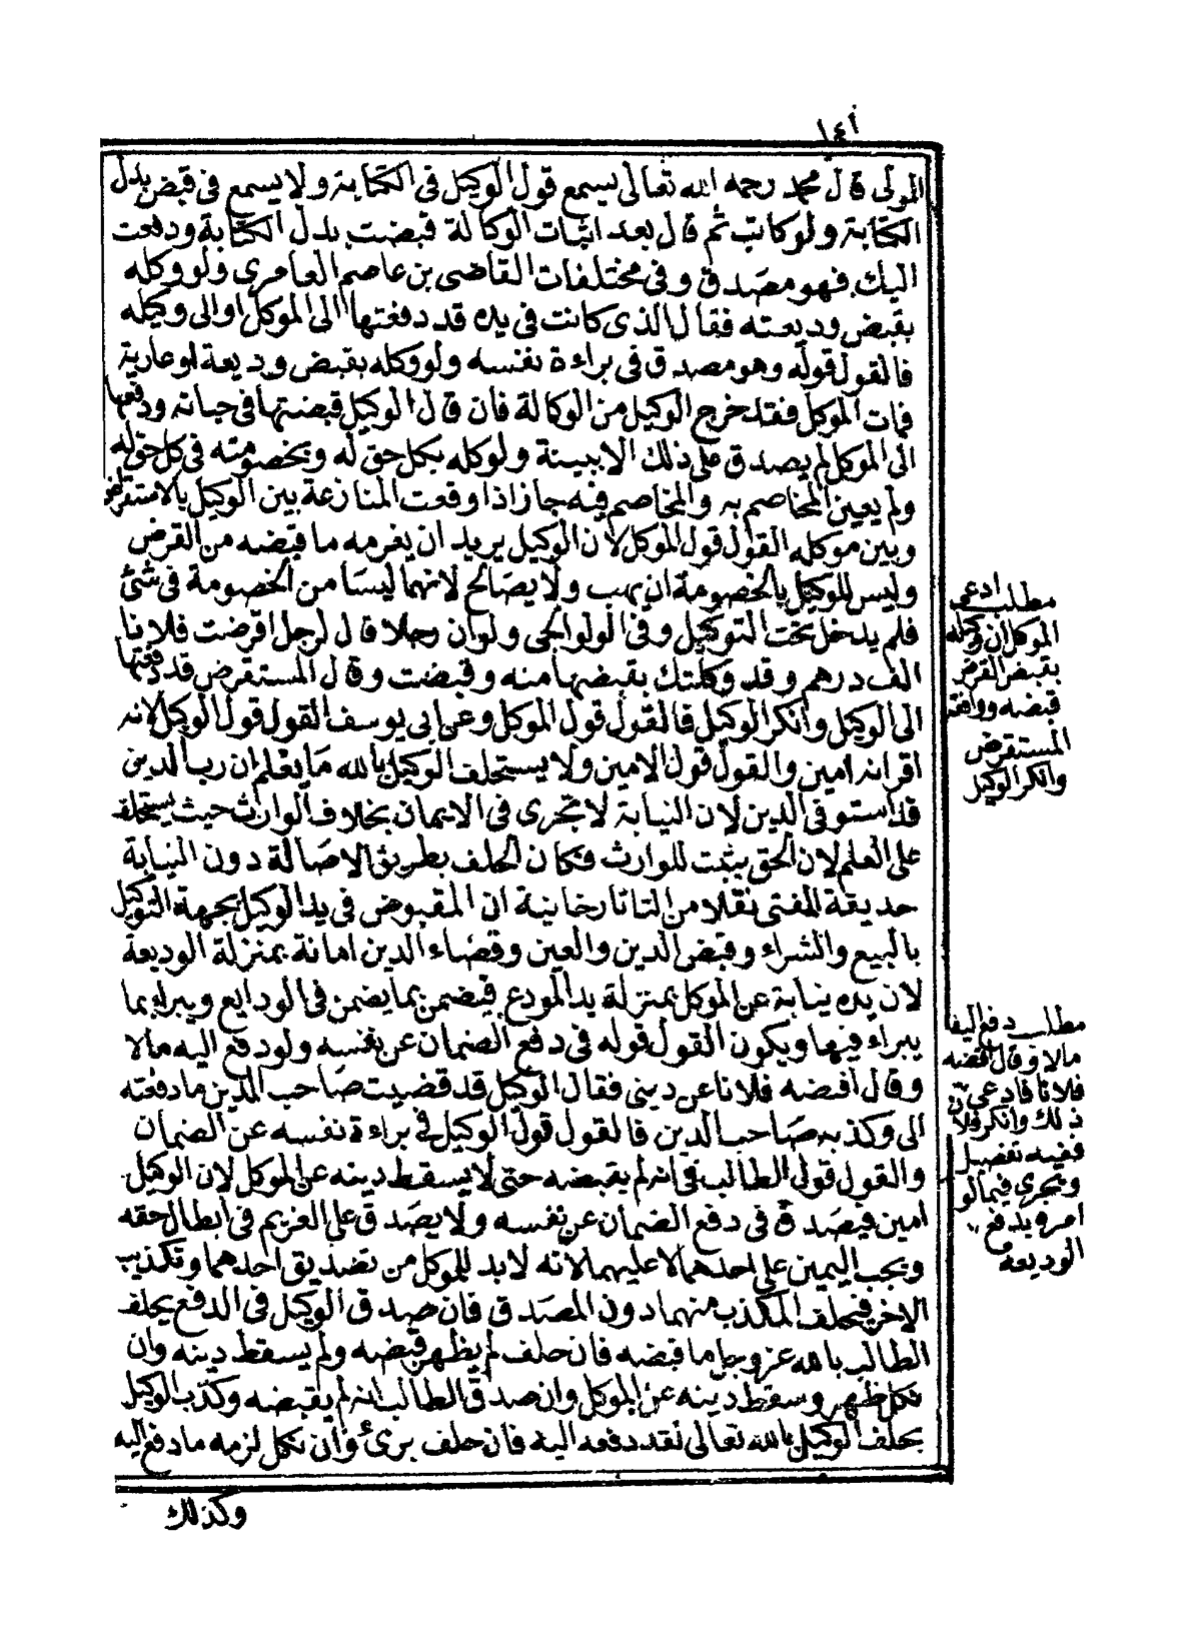 ١٤١
المولى قال محمد رحمه الله تعالى يسمع قول الوكيل فى الكتابة ولا يسمع فى قبض بدل
الكتابة ولو كاتب ثم قال بعد اثبات الوكالة قبضت بدل الكتابة ودفعت
اليك فهو مصدق وفى مختلفات القاضى بن عاصم العامرى ولو وكله
بقبض وديعته فقال الذى كانت فى يده قد دفعتها الى الموكل او الى وكيله
فالقول قوله وهو مصدق فى براءة نفسه ولو وكله بقبض وديعة او عارية
فمات الموكل فقد خرج الوكيل من الوكالة فان قال الوكيل قبضتها فى حياته ودفعتها
الى الموكل لم يصدق على ذلك الا ببينة ولو كله بكل حق له وبخصومته فى كل حق له
ولم يعين المخاصم به والمخاصم فيه جاز اذا وقعت المنازعة بين الوكيل بالاستقراض
وبين موكله القول قول الموكل لان الوكيل يريد ان يغرمه ما قبضه من القرض
وليس للوكيل بالخصومة ان يهب ولا يصالح لانهما ليسا من الخصومة فى شئ
فلم يدخل تحت التوكيل وفى الولوالجى ولو ان رجلا قال لرجل اقرضت فلانا
الف درهم وقد وكلتك بقبضها منه وقبضت وقال المستقرض قد دفعتها
الى الوكيل وانكر الوكيل فالقول قول الموكل وعن ابى يوسف القول قول الوكيل لانه
اقر انه امين والقول قول الامين ولا يستحلف الوكيل بالله ما يعلم ان رب الدين
قد استوفى الدين لان النيابة لا تجرى فى الايمان بخلاف الوارث حيث يستحلف
على العلم لان الحق يثبت للوارث فكان الحلف بطريق الاصالة دون النيابة
حديقة المفتى نقلا من التاتارخانية ان المقبوض فى يد الوكيل بجهة التوكيل
بالبيع والشراء وقبض الدين والعين وقضاء الدين امانة بمنزلة الوديعة
لان يده نيابة عن الموكل بمنزلة يد المودع فيضمن بما يضمن فى الودايع ويبراء بما
يبراء فيها ويكون القول قوله فى دفع الضمان عن نفسه ولو دفع اليه مالا
وقال اقضه فلانا عن دينى فقال الوكيل قد قضيت صاحب الدين ما دفعته
الى وكذبه صاحب الدين فالقول قول الوكيل فى براءة نفسه عن الضمان
والقول قول الطالب فى انه لم يقبضه حتى لا يسقط دينه عن الموكل لان الوكيل
امين فيصدق فى دفع الضمان عن نفسه ولا يصدق على الغريم فى ابطال حقه
ويجب اليمين على احدهما لا عليهما لانه لابد للموكل من تصديق احدهما وتكذيب
الاخر فيحلف المكذب منهما دون المصدق فان صدق الوكيل فى الدفع يحلف
الطالب بالله عز وجل ما قبضه فان حلف لم يظهر قبضه ولم يسقط دينه وان
نكل ظهر وسقط دينه عن الموكل وان صدق الطالب انه لم يقبضه وكذب الوكيل
يحلف الوكيل بالله تعالى لقد دفعه اليه فان حلف برئ وان نكل لزمه ما دفع اليه
وكذلك
مطلب ادعى
الموكل ان وكيله
بقبض القرض
قبضه ووافقه
المستقرض
وانكر الوكيل
مطلب دفع اليه
مالا وقال اقضه
فلانا فادعى
ذلك وانكر فلان
ففيه تفصيل
ويجرى فيما لو
امره بدفع
الوديعة